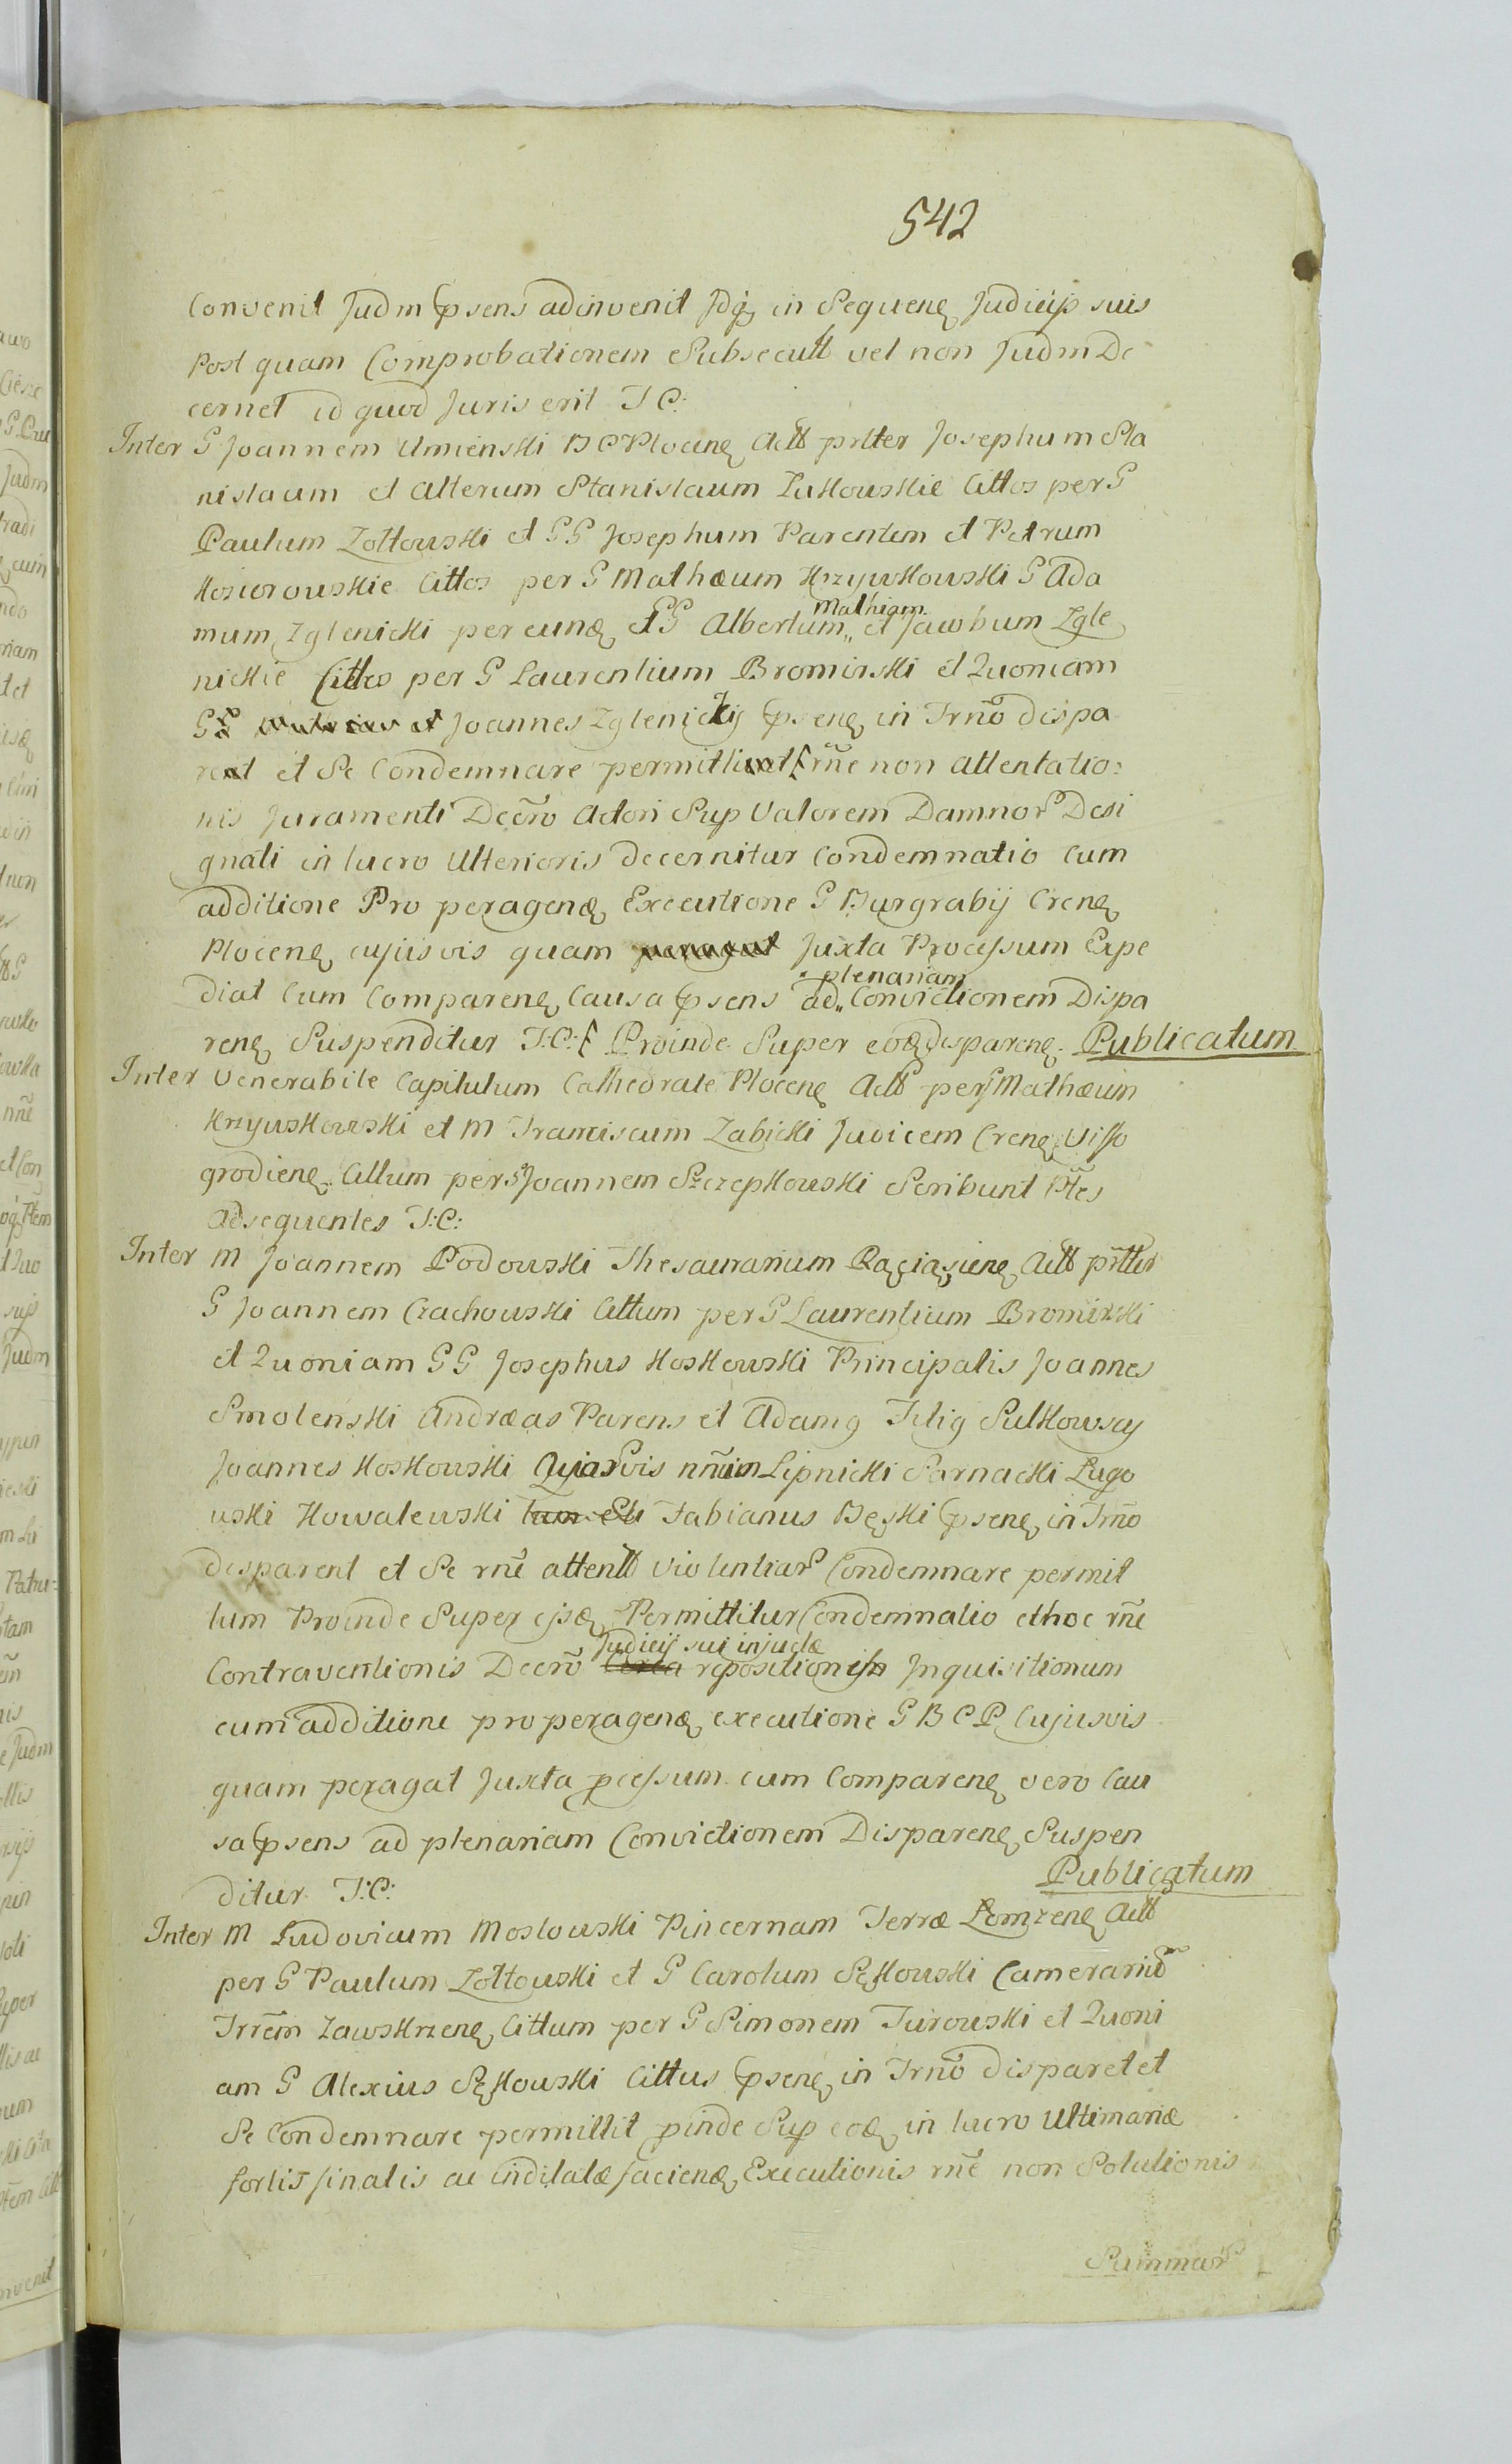 542
Convenit Judm psens adinvenit Jdq in Sequenq Judicijs suis
Post quam Comprobationem Subsecutt vel non Judm De
cernet id quod Juris erit J C:
Inter G Joannem Umienski B C Plocenq Actt prtter Josephum Sta
nislaum et alterum Stanislaum Żukowskie Cittos per G
Paulum Zottowski et GG Josephum Parentem et Petrum
Kosiorowskie Cittos per G Mathæum Krzywkowski G Ada
mum Zglenicki per eunq et GG Albertum „ Mathiam et Jacobum Zgle
nickie Cittos per G Laurentium Bromirski et Quoniam
GG Joannes Zglenickij psenq in Trno dispa
ret et Se Condemnare permittit rne non attentatio:
nis Juramenti Decro Actori Sup Valorem Damnor Desi
gnati in lucro Ulterioris decernitur Condemnatio cum
additione Pro peragenq Executione G Burgrabij Crenq
Plocenq cujusvis quam peragat Juxta Processum Expe
diat Cum Comparenq Causa psens ad „ plenariam Convictionem Dispa
renq Suspenditur J:C: Proinde Super eoq disparenq. Publicatum
Inter Venerabile Capitulum Cathedrale Plocenq Actt per G Mathæum
Krzywkowski et M Franciscum Zabicki Judicem Crenq Visso
grodienq Cittum per G Joannem Szczepkowski Scribunt Ptes
adsequentes J:C:
Inter M Joannem Podowski Thesaurarium Raciąsienq Actt prtter
G Joannem Czachowski Cittum per G Laurentium Bromirski
et Quoniam GG Josephus Koskowski Principalis Joannes
Smolenski Andræas Parens et Adamq Filiq Sulkowscy
Joannes Koskowski Lipnicki Sarnacki Lugo
wski Kowalewski Fabianus Bęski psenq in Trno
disparent et Se rne attentt violentiar Condemnare permit
tum Proinde Super ejsq Permittitur Condemnatio et hoc rne
Contraventionis Decro Judicij sui injuctæ repositionis Jnquisitionum
cum additione pro peragenq executione G B C P Cujusvis
quam peragat Juxta pcessum cum Comparenq vero Cau
sa psens ad plenariam Convictionem Disparenq Suspen
ditur J:C: Publicatum
Inter M Ludovicum Mostowski Pincernam Terræ Łomzenq Actt
per G Paulum Zottowski et G Carolum Sękowski Camerariu
Trrem Zawskrzenq Cittum per G Simonem Turowski et Quoni
am G Alexius Sękowski Cittus psenq in Trno disparet et
Se Condemnare permittit pinde Sup eoq in lucro Ultimariæ
fortis finalis ac inditatæ facienq Executionis rne non Solutionis
Summar